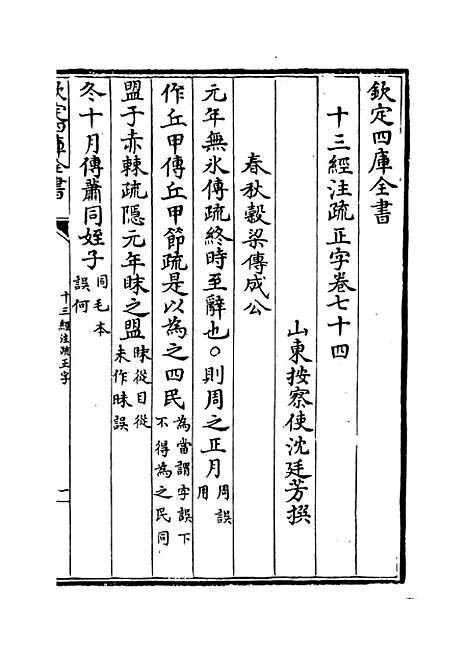 欽定四庫全書
十三經注疏正字卷七十四
山東按察使沈廷芳撰
春秋穀梁傳成公
元年無氷傳疏終時至辭也○則周之正月周誤用
作丘甲傳丘甲節疏是以為之四民為當謂字誤下不得為之民同
盟于赤棘疏隱元年眜之盟眜從目從末作昧誤
冬十月傳蕭同姪子同毛本誤何
欽定四庫全書
十三經注疏正字
一